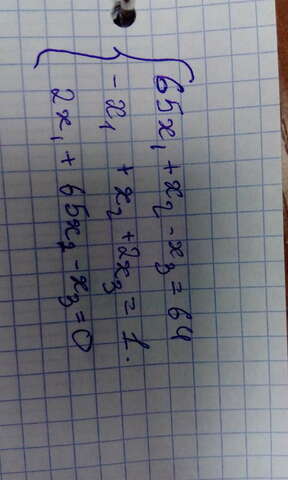 65x₁ + x₂ - x₃ = 64
-x₁ + x₂ + 2x₃ = 1.
2x₁ + 65x₂ - x₃ = 0